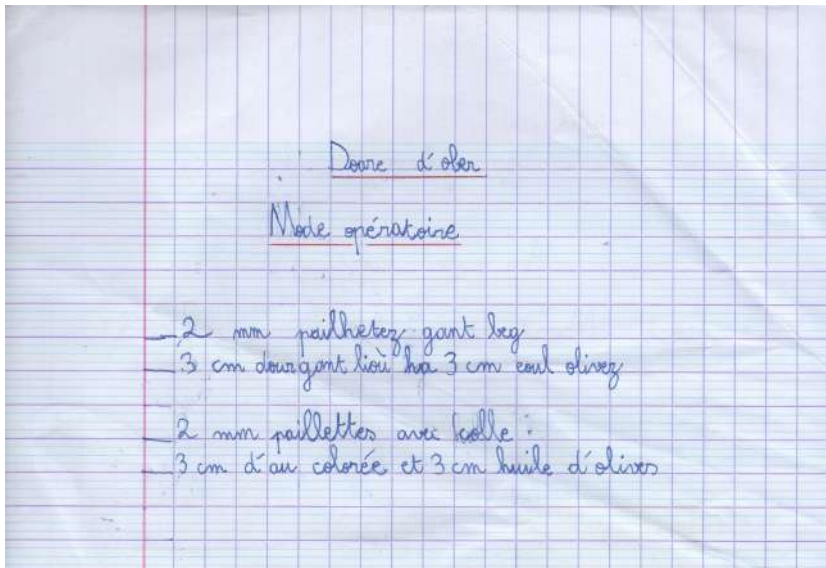 Doare d'ober
Mode opératoire
_ 2 mm pailhetez gant beg
_ 3 cm dour gant lioù ha 3 cm eoul olivez
_ 2 mm paillettes avec colle :
_ 3 cm d'au colorée et 3 cm huile d'olives